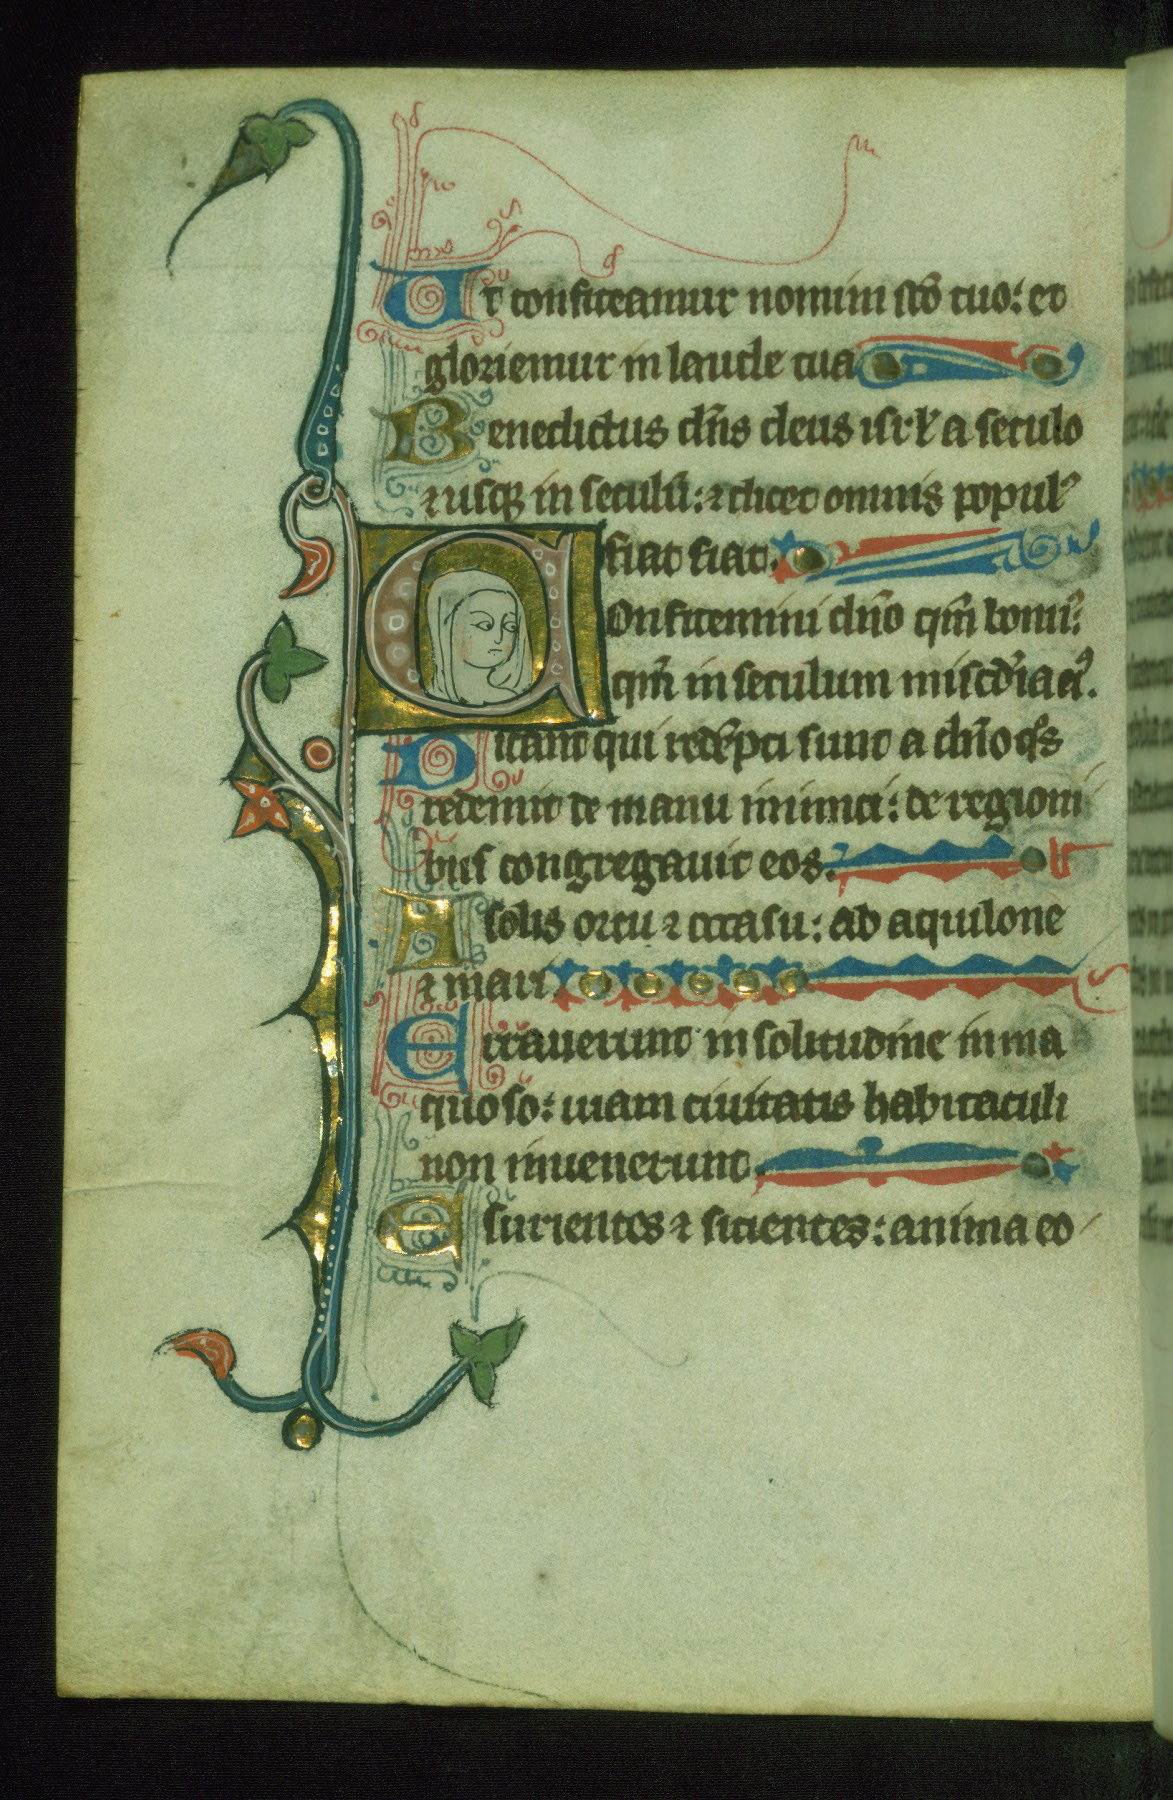 Ut confiteamur nomini sc̄o tuo: et
gloriemur in laude tua
Benedictus dn̄s deus isrl̄ a seculo
⁊ usq̢ in seculū: ⁊ dicet omnis populꝰ
fiat fiat.
Confitemini dn̄o qm̄ bonus:
qm̄ in seculum misc̄dia eiꝰ.
Dicant qui redēpti sunt a dn̄o qͦs
redemit de manu inimici: de regioni
bus congregavit eos.
A solis ortu ⁊ occasu: ab aquilone
⁊ mari
Erraverunt in solitudine in ina
quoso: uiam ciuitatis habitaculi
non inuenerunt
Esurientes ⁊ sicientes: anima eo